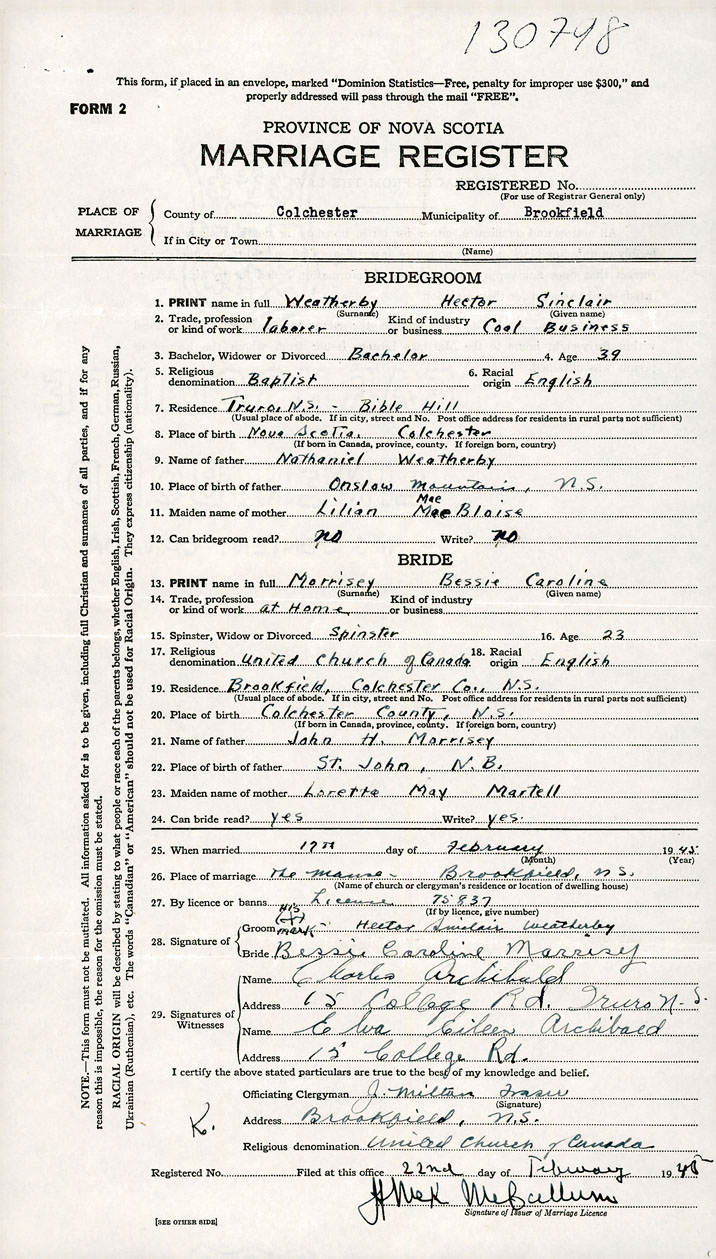 130798
This form, if placed in an envelope, marked "Dominion Statistics—Free, penalty for improper use $300," and
properly addressed will pass through the mail "FREE".
FORM 2
PROVINCE OF NOVA SCOTIA
MARRIAGE REGISTER
REGISTERED No.
(For use of Registrar General only)
PLACE OF MARRIAGE
County of Colchester Municipality of Brookfield
If in City or Town
(Name)
BRIDEGROOM
1. PRINT name in full Weatherby Hector Sinclair
(Surname) (Given name)
2. Trade, profession or kind of work laborer Kind of industry or business Coal Business
3. Bachelor, Widower or Divorced Bachelor 4. Age 39
5. Religious denomination Baptist 6. Racial origin English
7. Residence Truro, N.S. - Bible Hill
(Usual place of abode. If in city, street and No. Post office address for residents in rural parts not sufficient)
8. Place of birth Nova Scotia. Colchester
(If born in Canada, province, county. If foreign born, country)
9. Name of father Nathaniel Weatherby
10. Place of birth of father Onslow Mountain, N.S.
Mae
11. Maiden name of mother Lilian Mae Bloise
12. Can bridegroom read? no Write? no
BRIDE
13. PRINT name in full Morrisey Bessie Caroline
(Surname) (Given name)
14. Trade, profession or kind of work at Home Kind of industry or business
15. Spinster, Widow or Divorced Spinster 16. Age 23
17. Religious denomination United Church of Canada 18. Racial origin English
19. Residence Brookfield, Colchester Co., N.S.
(Usual place of abode. If in city, street and No. Post office address for residents in rural parts not sufficient)
20. Place of birth Colchester County, N.S.
(If born in Canada, province, county. If foreign born, country)
21. Name of father John H. Morrisey
22. Place of birth of father St. John, N.B.
23. Maiden name of mother Loretta May Martell
24. Can bride read? yes Write? yes.
25. When married 17th day of February 1945
(Month) (Year)
26. Place of marriage The manse - Brookfield, N.S.
(Name of church or clergyman's residence or location of dwelling house)
27. By licence or banns License 75837
(If by licence, give number)
28. Signature of
His
Groom mark - Hector Sinclair Weatherby
Bride Bessie Caroline Marrisey
29. Signatures of Witnesses
Name Charles Archibald
Address 15 College Rd. Truro N.S.
Name Elva Eileen Archibald
Address 15 College Rd.
I certify the above stated particulars are true to the best of my knowledge and belief.
Officiating Clergyman J. Milton Fraser
(Signature)
K.
Address Brookfield, N.S.
Religious denomination United Church of Canada
Registered No. Filed at this office 22nd day of February 1945
McCallum
Signature of Issuer of Marriage Licence
[SEE OTHER SIDE]
NOTE.—This form must not be mutilated. All information asked for is to be given, including full Christian and surnames of all parties, and if for any
reason this is impossible, the reason for the omission must be stated.
RACIAL ORIGIN will be described by stating to what people or race each of the parents belongs, whether English, Irish, Scottish, French, German, Russian,
Ukrainian (Ruthenian), etc. The words "Canadian" or "American" should not be used for Racial Origin. They express citizenship (nationality).